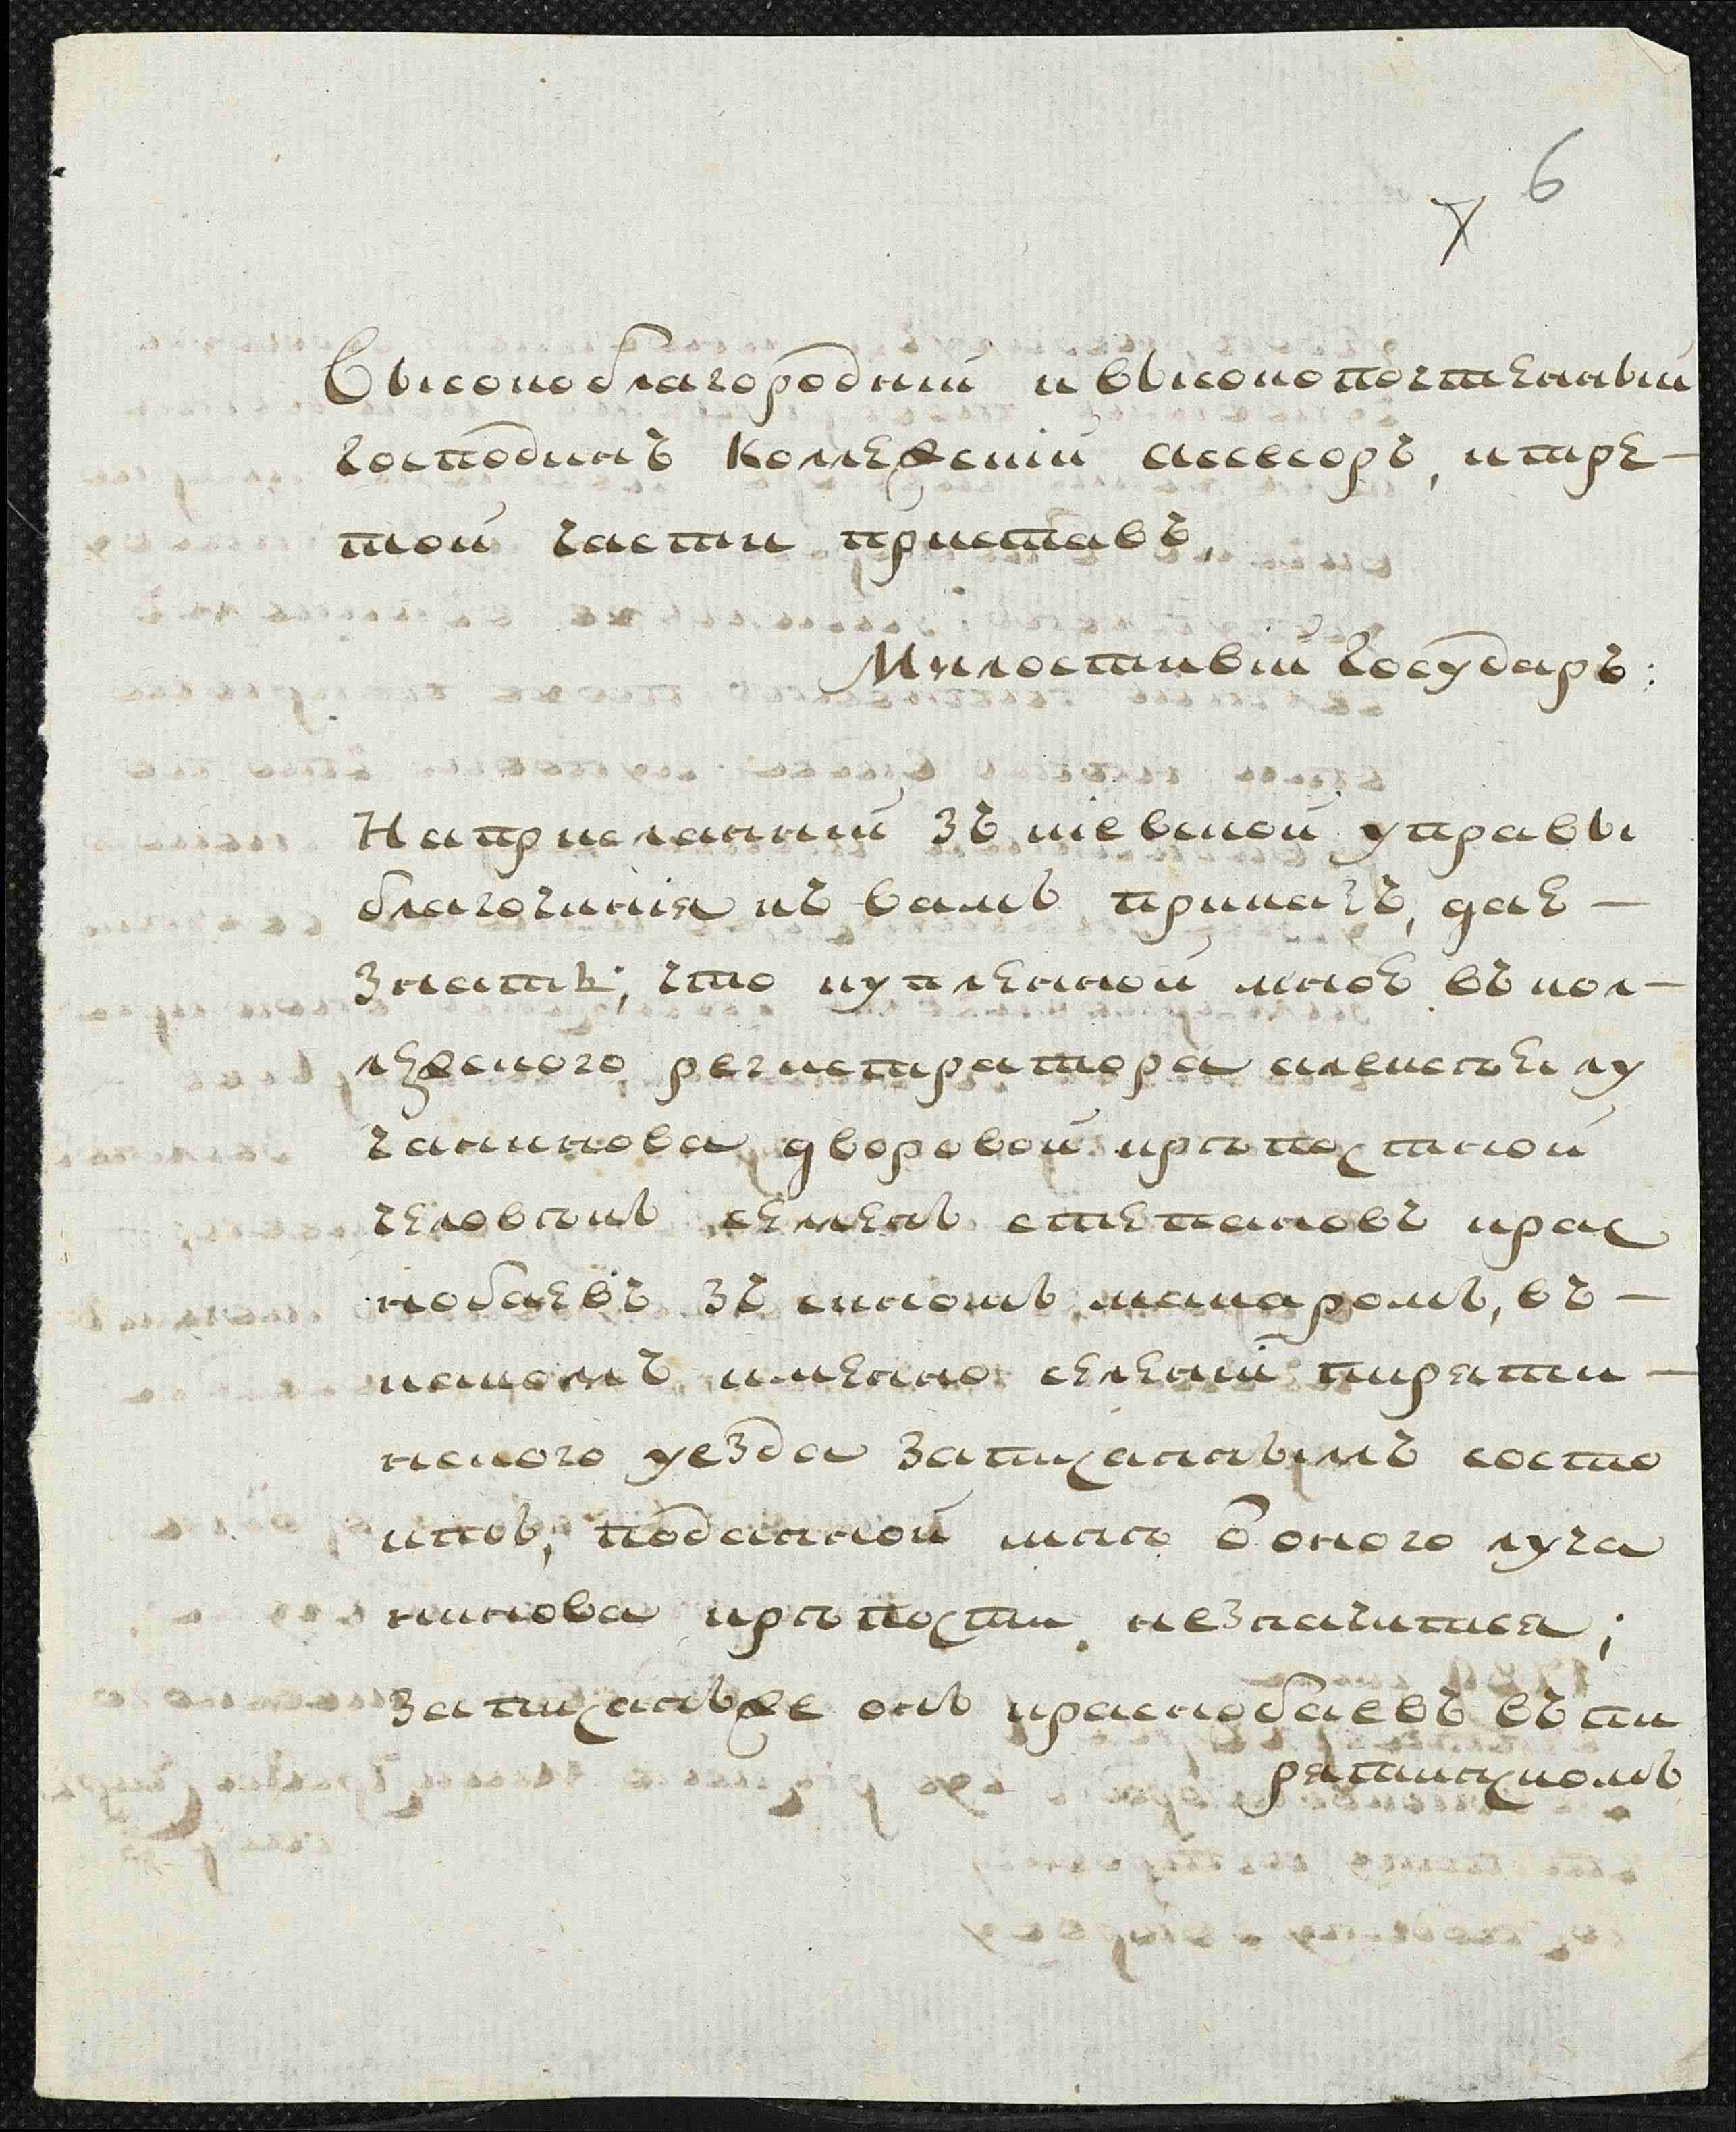 6
Высокоблагородний и высокопочтенный
господинъ Коллежский ассесоръ, и тре-
той части приставъ,
Милостивий Государь:
На присланний зъ киевской управы
благочиния къ вамъ приказъ, дае-
знать; что купленной мною въ кол-
лежского регистратора алексея лу
чанинова дворовой крѣпостной
человѣкъ семенъ степановъ крас
нобаевъ зъ сином макаромъ, въ-
какомъ именно селении пирятин-
ского уезда записаннымъ состо
итъ, поданной мнѣ о оного луча
нинова крѣпости незначится;
записанъже онъ краснобаевъ въ пи
рятинскомъ